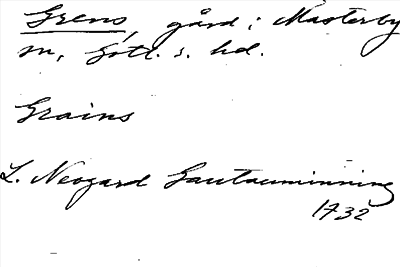 Grens, gård i Mästerby
sn, Gotl. s. hd.
Grains
L. Neogard Gautauminning
1732